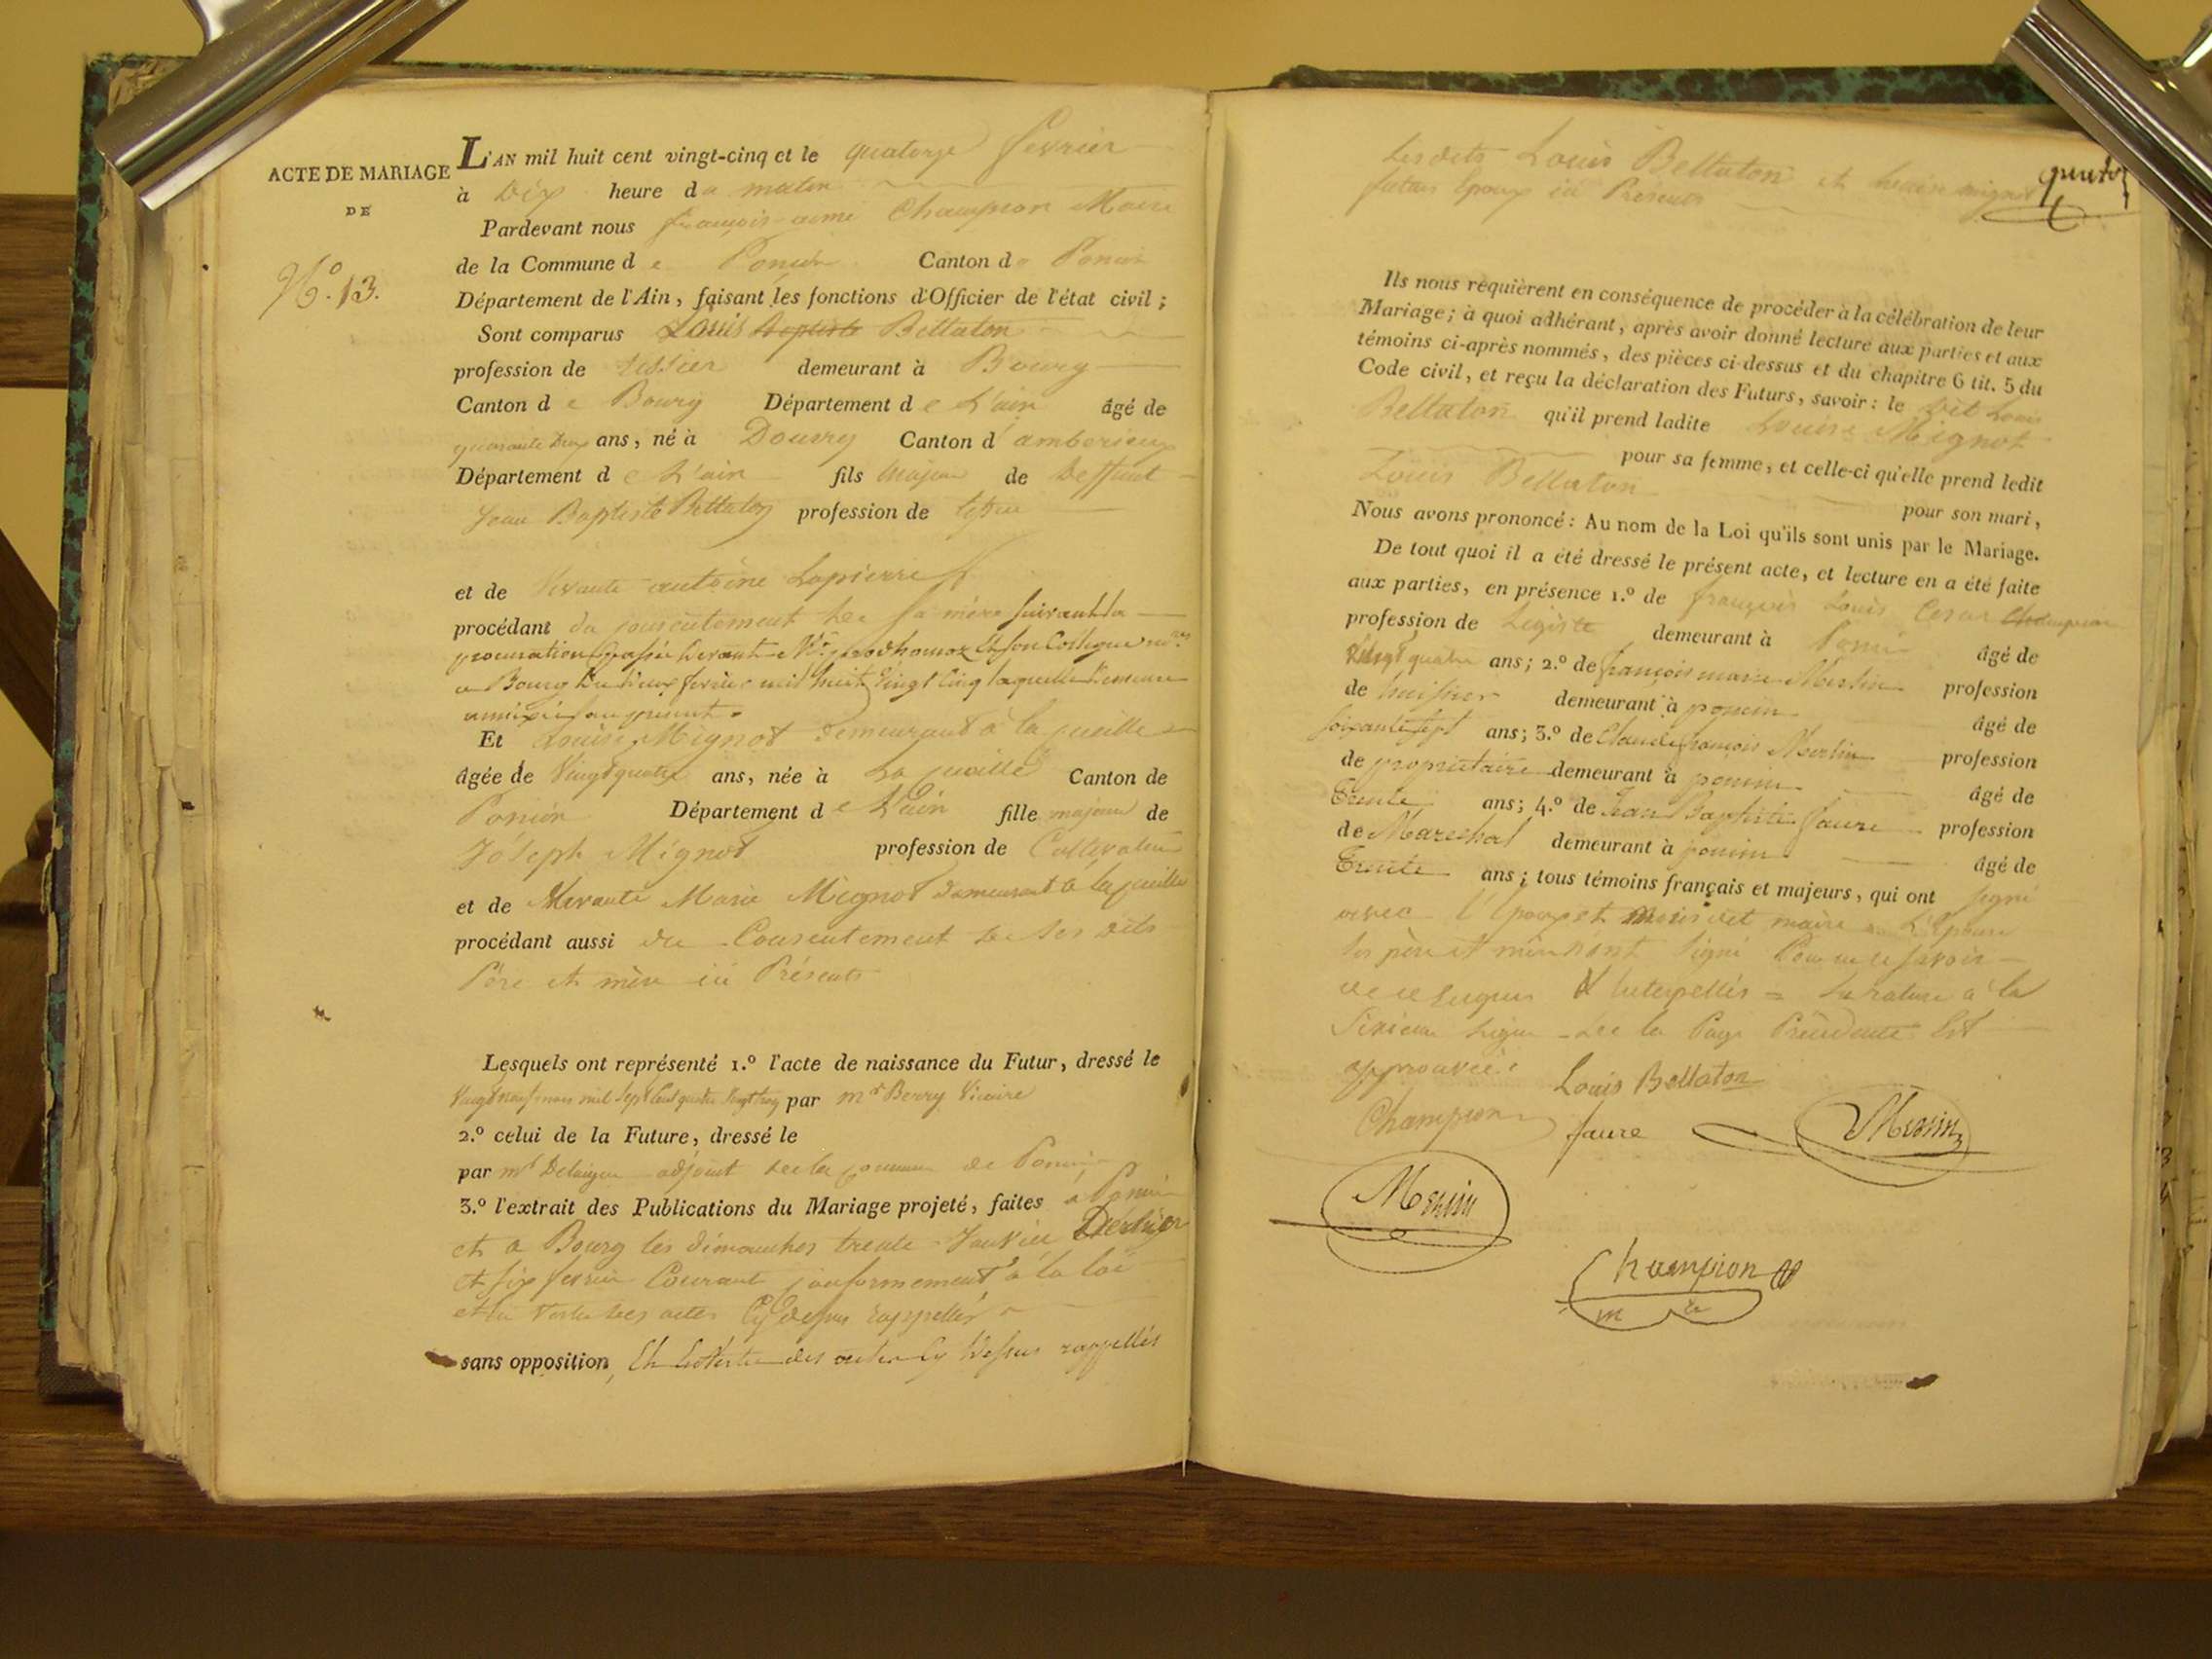 ACTE DE MARIAGE
DE
N.º 13.
L'AN mil huit cent vingt-cinq et le quatorze fevrier
à dix heure du matin
Pardevant nous françois aimé Champion Maire
de la Commune de Poncin Canton de Poncin
Département de l'Ain, faisant les fonctions d'Officier de l'état civil;
Sont comparus Louis Baptiste Bellaton
profession de tessier demeurant à Bourg
Canton de Bourg Département de L'ain âgé de
quarante deux ans, né à Douvry Canton d'amberieux
Département de L'ain fils majeur de deffunt
Jean Baptiste Bellaton profession de
et de vivante antoine Lapierre
procédant du consentement de sa mère suivant la
procuration passée devant et son Collegue
a Bourg du deux ferrier mil huit vingt cinq laquelle demeure
annexée au present.
Et Louise Mignot demeurant à la
âgée de vingt quatre ans, née à La Canton de
Poncin Département de L'ain fille majeure de
Joseph Mignot profession de Cultivateur
et de Vivante Marie Mignot demeurant à la
procédant aussi du Consentement de ses dits
Père et mère ici Présents
Lesquels ont représenté 1.º l'acte de naissance du Futur, dressé le
vingt neuf mars mil sept Cent quatre vingt trois par mr Berry Vicaire
2.º celui de la Future, dressé le
par mr adjoint de la Commune de Poncin
3.º l'extrait des Publications du Mariage projeté, faites a Poncin
et a Bourg les dimanches trente Janvier Dernier
et six ferrier Courant conformement à la loi
et en vertu des actes Cy dessus rappellés
sans opposition, Et En Vertu des actes Cy dessus rappellés
Lesdits Louis Bellaton et Louise Mignot
futurs Epoux ici Présents
Ils nous requièrent en conséquence de procéder à la célébration de leur
Mariage; à quoi adhérant, après avoir donné lecture aux parties et aux
témoins ci-après nommés, des pièces ci-dessus et du chapitre 6 tit. 5 du
Code civil, et reçu la déclaration des Futurs, savoir: le dit Louis
Bellaton qu'il prend ladite Louise Mignot
pour sa femme, et celle-ci qu'elle prend ledit
Louis Bellaton pour son mari,
Nous avons prononcé: Au nom de la Loi qu'ils sont unis par le Mariage.
De tout quoi il a été dressé le présent acte, et lecture en a été faite
aux parties, en présence 1.º de françois Louis Cesar Champion
profession de Legiste demeurant à Poncin âgé de
vingt quatre ans; 2.º de françois marie profession
de huissier demeurant à poncin âgé de
soixante sept ans; 3.º de Claude françois profession
de propriétaire demeurant à poncin âgé de
Trente ans; 4.º de Jean Baptiste faure profession
de Marechal demeurant à poncin âgé de
Trente ans; tous témoins français et majeurs, qui ont signé
avec l'Epoux et nous dit maire L'Epouse
ses père et mère signé Pour ne le savoir
de ce requis et Interpellés = La rature à la
Sixieme ligne de la Page Précédente Est
approuvée.
Louis Bellaton
Champion
faure
Champion